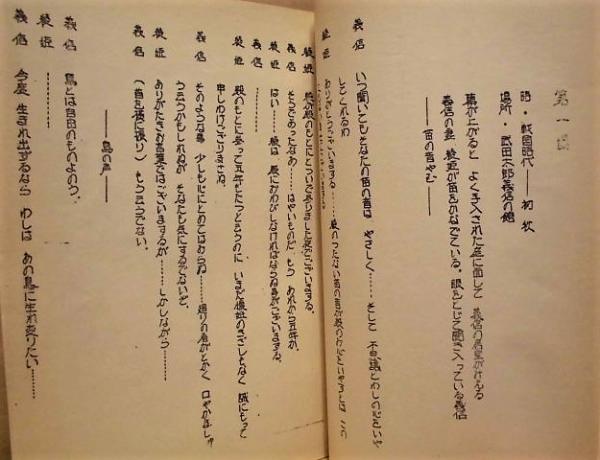 第一
時・戦国時代――初秋
場所・武田太郎義信の館
幕が上がると よく手入された庭に面して 義信の居室が
義信の妻 綾姫が笛をかなでている。眼をとじて聞き入っている義信
――笛の音やむ――
義信 いつ聞いてもそなたの笛の音は やさしく……そして 不思議とわしの心を
してくれるわ
綾姫 ありがとうございまする……
綾姫 殿のもとにとついで参りました
義信 そうであったなあ……はやいものだ もう あれから五年か
綾姫 はい……綾は 殿におわびしなければならぬ事がございまする。
義信 …………
綾姫 殿のもとに参って五年もたつというのに いまだ懐妊のきざしもなく 誠にもって
申しわけございませぬ。
義信 そのような事 少しも心にとめてはおらぬ……廻りの者がとかく 口やかましゅう
云うかもしれぬが そなたも気にするでないぞ。
綾姫 ありがたきお言葉ではございまするが……しかしながら……
義信 (首を横に振り)もう云うでない。
――鳥の声――
義信 鳥とは自由のものよのう。
綾姫 …………
義信 今度 生まれ出ずるなら わしは あの鳥に生れ変りたい……